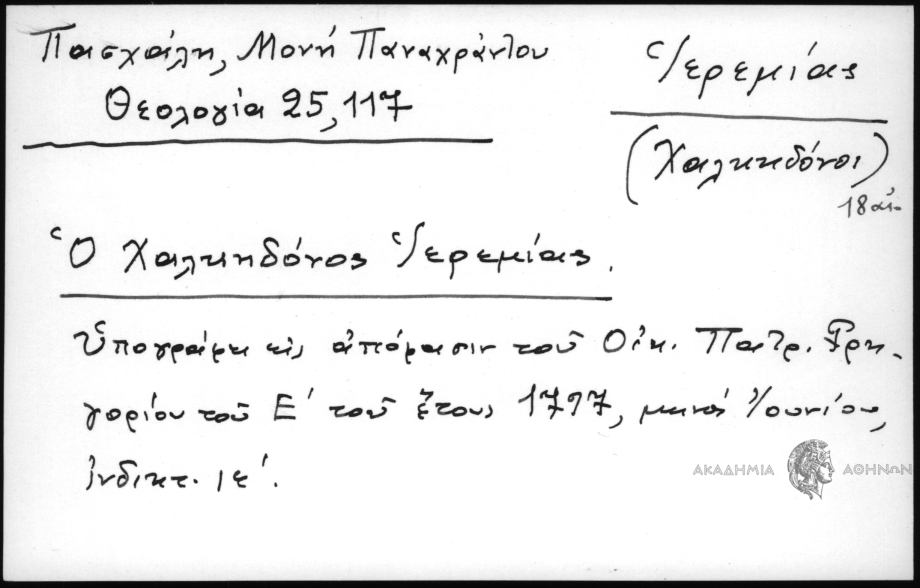 Πασχάλη, Μονή Παναχράντου
Θεολογία 25, 117
Ἱερεμίας
(Χαλκηδόνος)
18 αἰ.
Ὁ Χαλκηδόνος Ἱερεμίας.
Ὑπογράφει εἰς ἀπόφασιν τοῦ Οἰκ. Πατρ. Γρη-
γορίου τοῦ Ε΄ τοῦ ἔτους 1797, μηνός Ἰουνίου,
ἰνδικτ. ιε΄.
ΑΚΑΔΗΜΙΑ ΑΘΗΝΩΝ